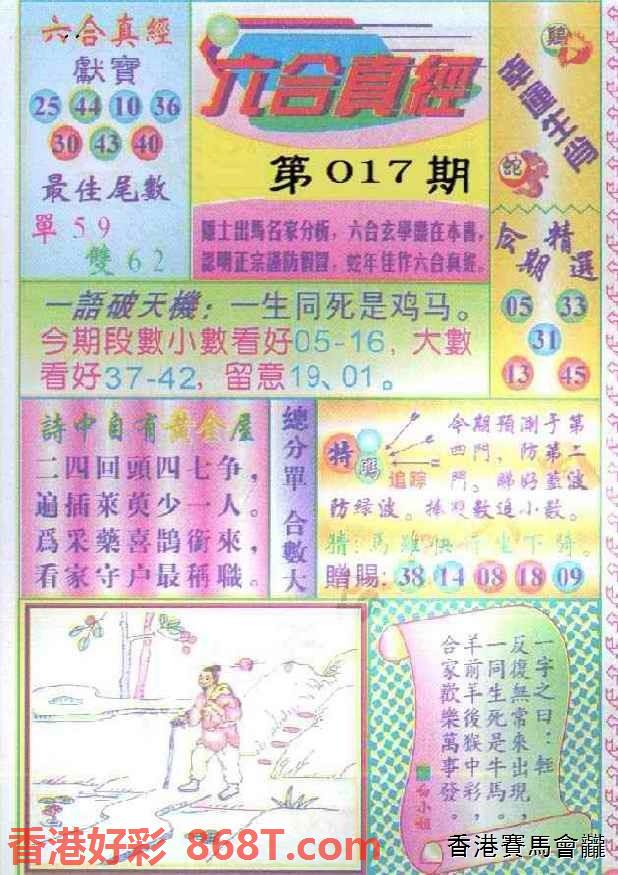 六合真經
獻寶
25 44 10 36
30 43 40
最佳尾數
單59
雙62
六合真經
第017期
隱士出馬名家分析，六合玄學盡在本書，
認明正宗謹防假冒，蛇年佳作六合真經。
幸運生肖
鷄
蛇
今期精選
05 33
31
13 45
一語破天機：一生同死是鸡马。
今期段數小數看好05-16，大數
看好37-42，留意19、01。
詩中自有黃金屋
二四回頭四七争，
遍插萊萸少一人。
爲采藥喜鵲銜來，
看家守户最稱職。
總分單 合數大
特碼
追踪
今期預測于第
四門，防第二
門。睇好藍波
防绿波。
數追小數。
猜：馬
坐下騎。
贈賜：38 14 08 18 09
一字之曰：輕
反復無常來出現，
一同生死是牛馬。
羊前羊後猴中彩，
合家歡樂萬事發。
白小姐
香港好彩 868T.com
香港賽馬會